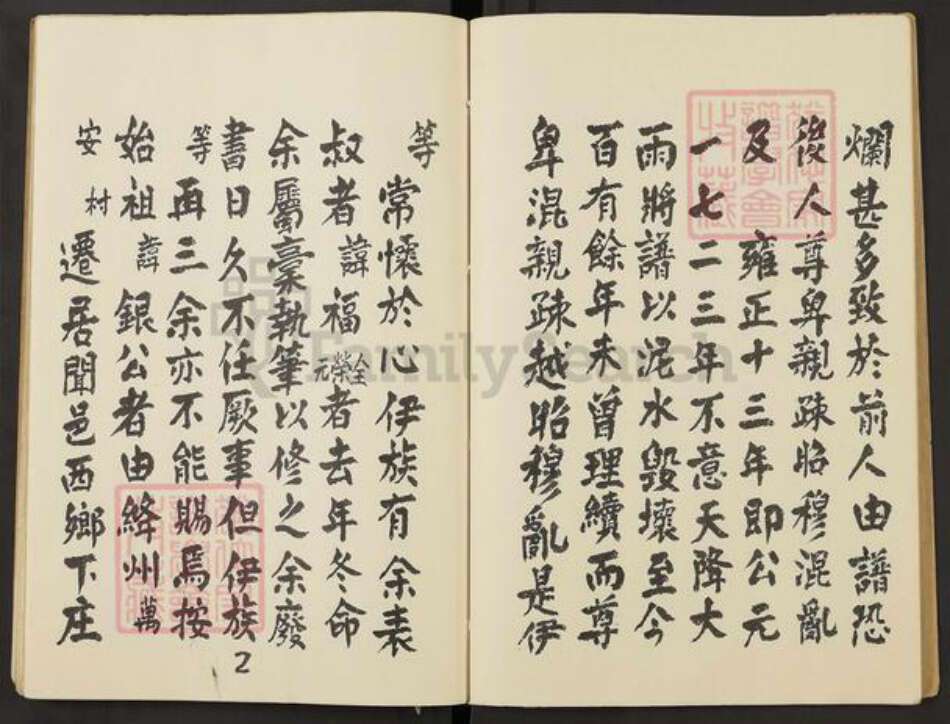 爛甚多致於前人由譜恐
後人尊卑親疎昭穆混亂
及 雍正十三年即公元
一七二三年不意天降大
雨將譜以泥水毀壞至今
百有餘年未曾理續而尊
卑混親疎越昭穆亂是伊
等
常懷於心伊族有余表
叔者諱福全榮元者去年冬命
余屬稾執筆以修之余廢
書日久不任厥事但伊族
等再三余亦不能賜焉按
始祖諱銀公者由絳州萬
安村遷居聞邑西鄉下庄
2
FamilySearch